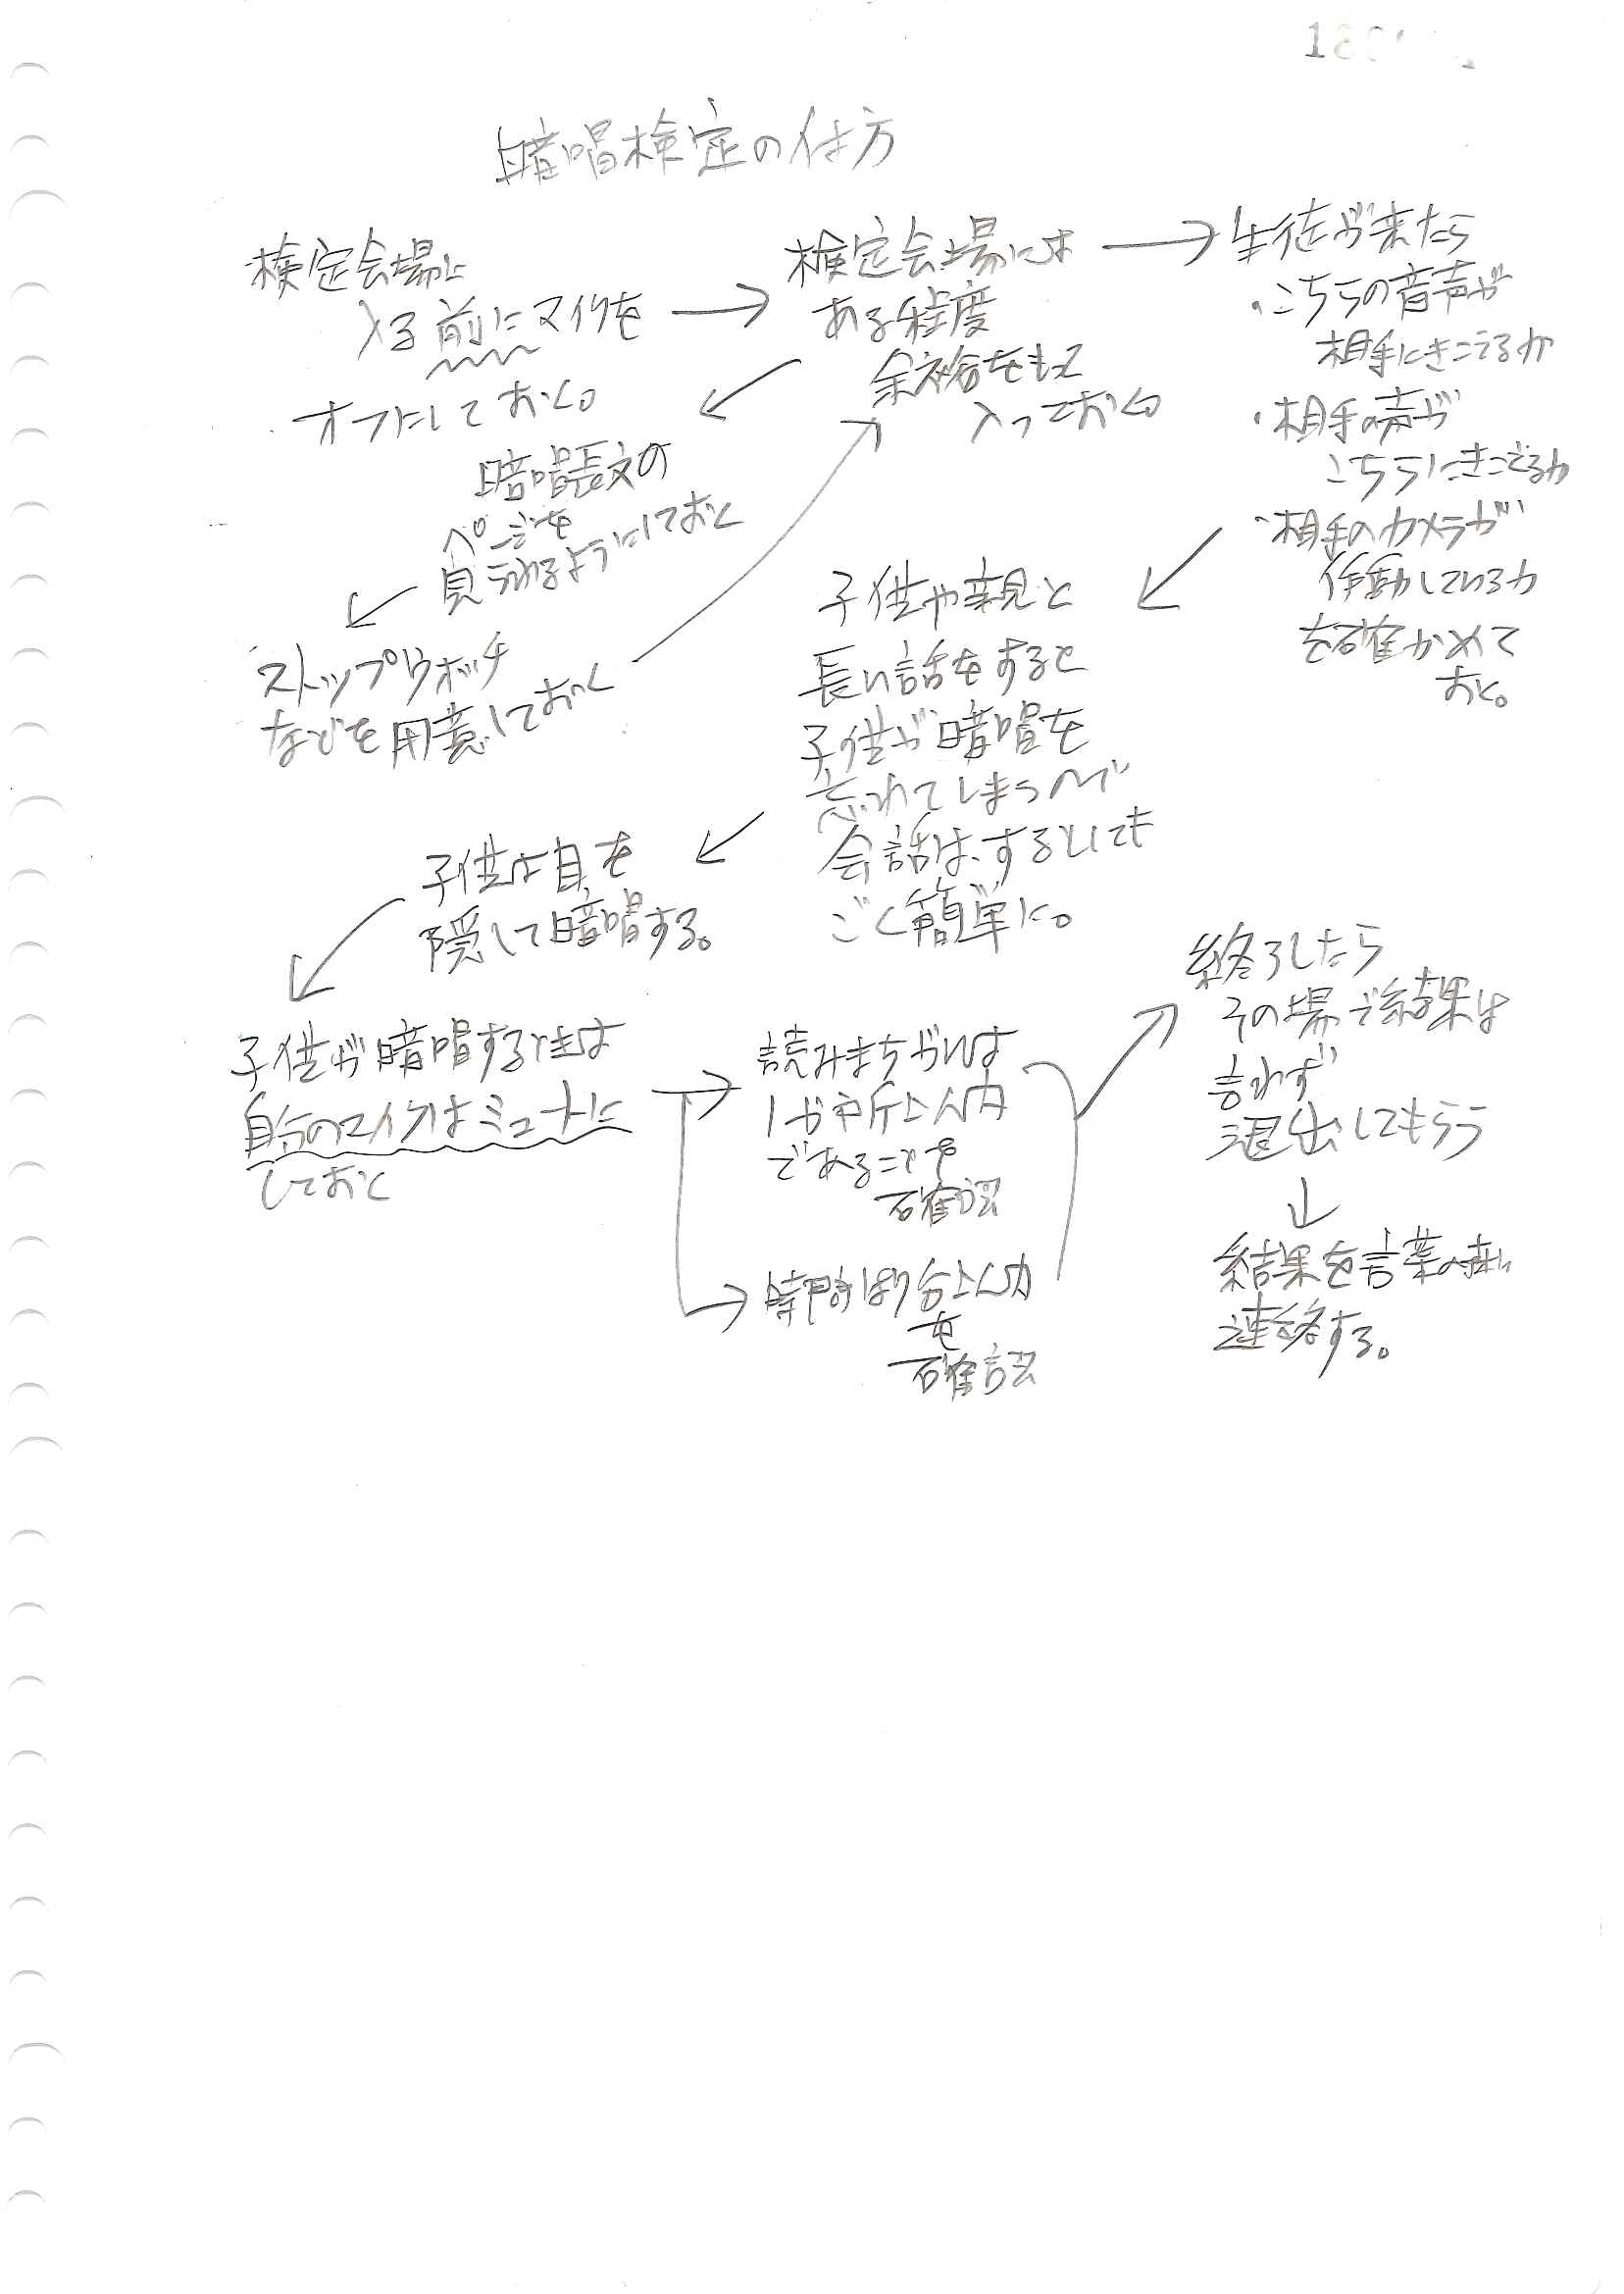 暗唱検定の仕方
検定会場に
入る前にマイクを
オフにしておく。
検定会場には
ある程度
余裕をもって
入っておく。
暗唱長文の
ページを
見られるようにしておく
ストップウォッチ
などを用意しておく
生徒が来たら
・こちらの音声が
相手にきこえるか
・相手の声が
こちらにきこえるか
・相手のカメラが
作動しているか
を確かめて
おく。
子供や親と
長い話をすると
子供が暗唱を
忘れてしまうので
会話は、するとしても
ごく簡単に。
子供は目を
隠して暗唱する。
子供が暗唱するときは
自分のマイクはミュートに
しておく
読みまちがいは
1か所以内
であることを
確認
時間は 分以内
を
確認
終了したら
その場で結果は
言わず
退出してもらう
結果を言葉の森に
連絡する。